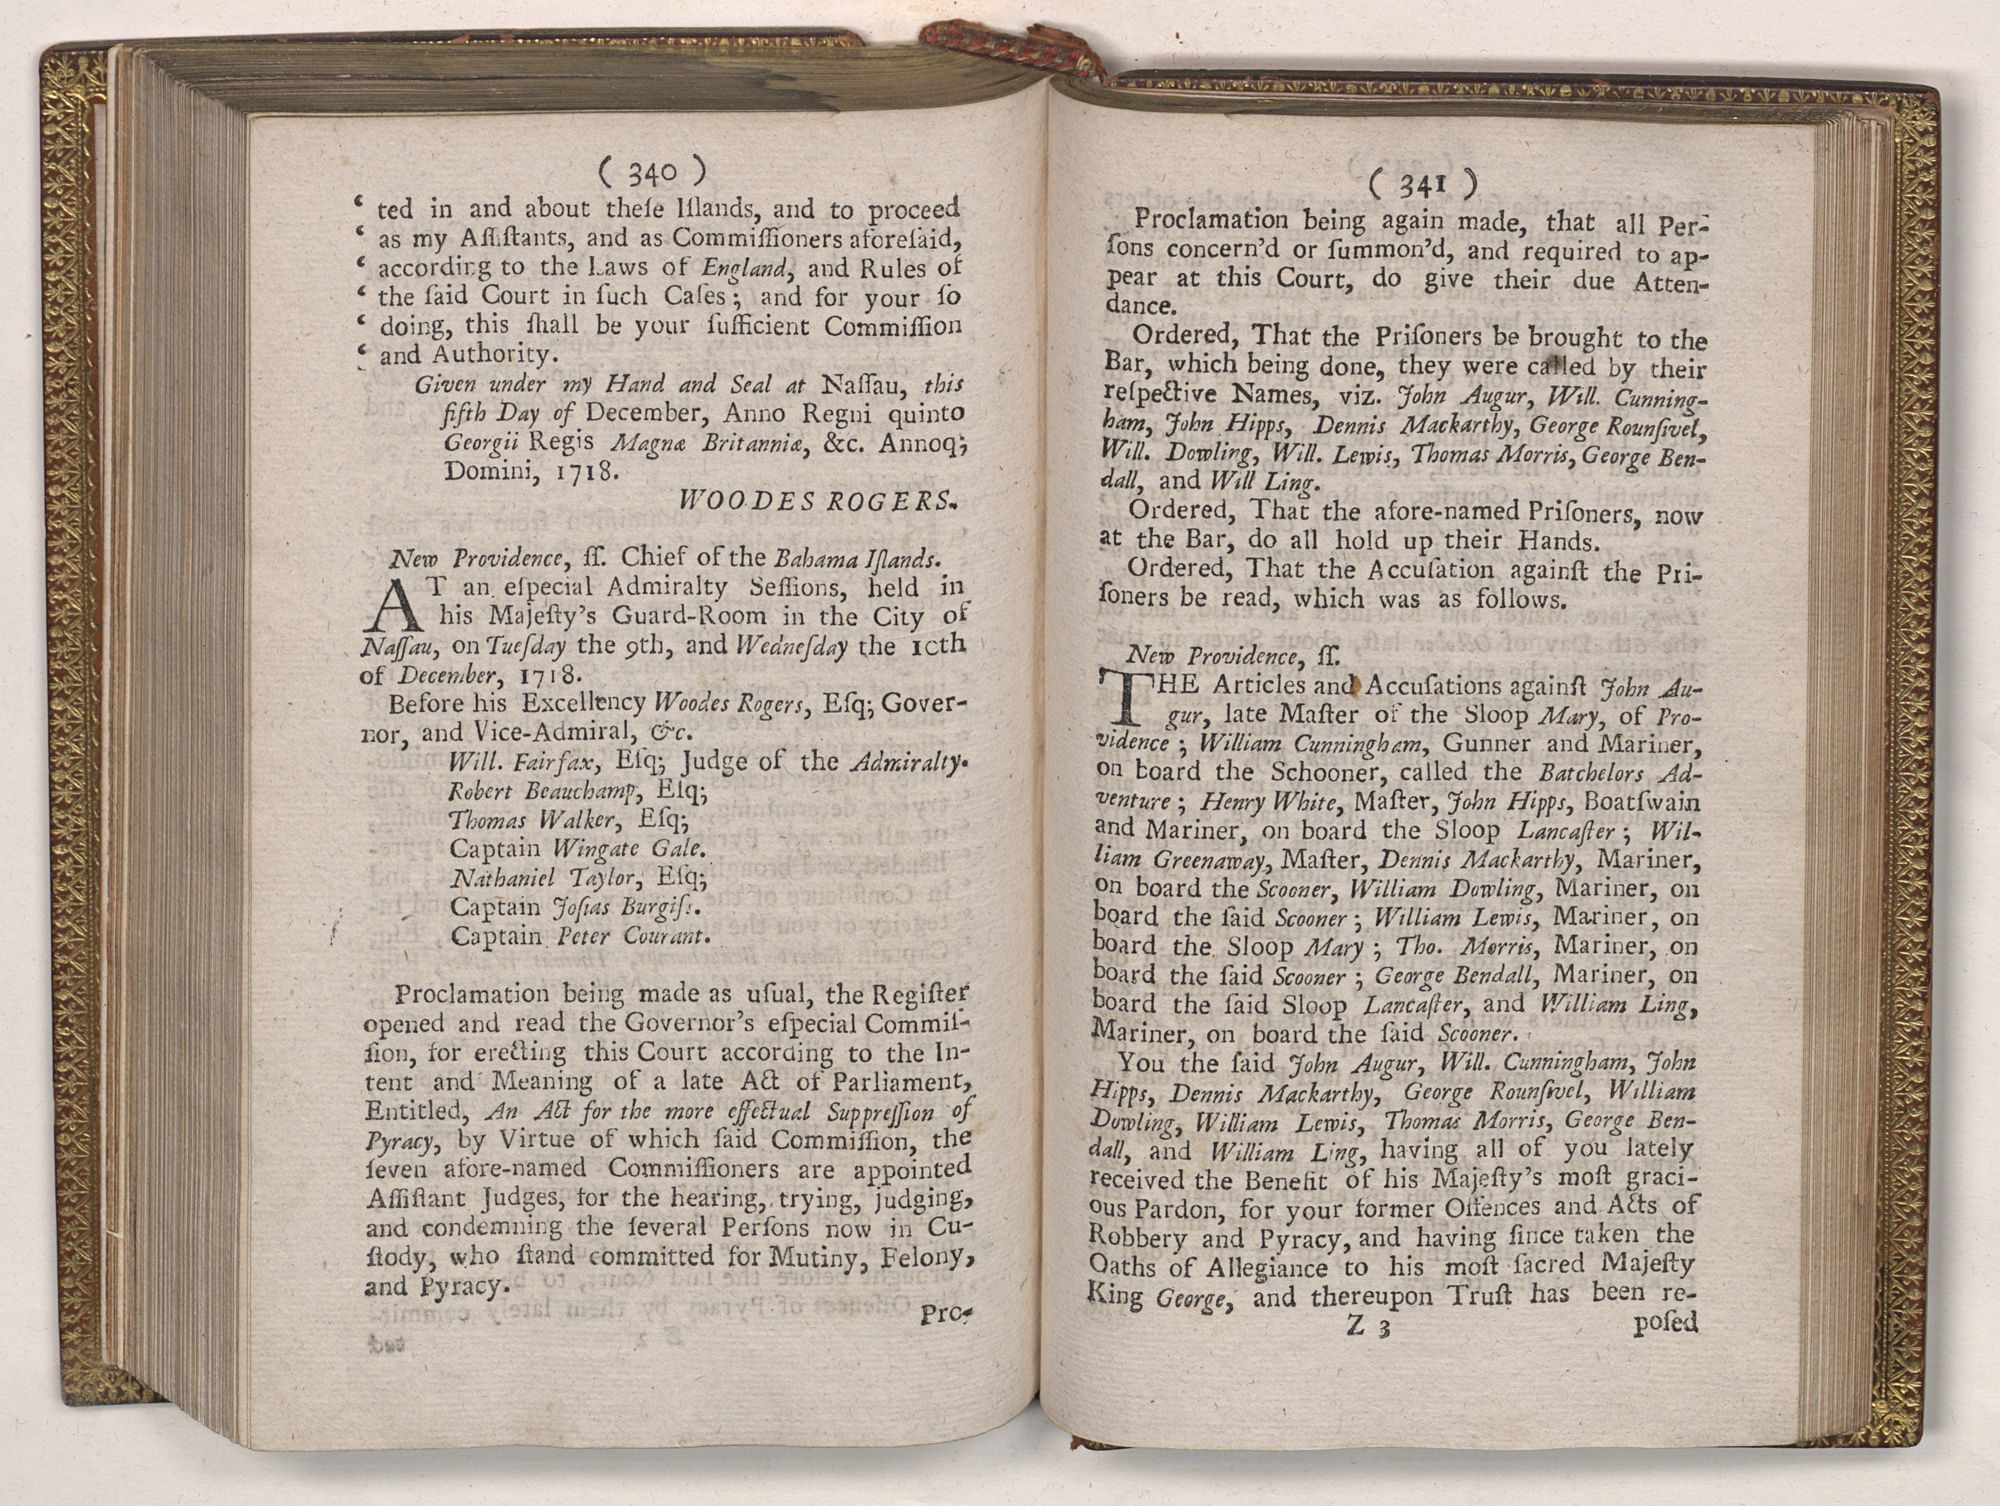 ( 340 )
‘ ted in and about theſe Iſlands, and to proceed
‘ as my Aſſiſtants, and as Commiſſioners aforeſaid,
‘ according to the Laws of England, and Rules of
‘ the ſaid Court in ſuch Caſes; and for your ſo
‘ doing, this ſhall be your ſufficient Commiſſion
‘ and Authority.
Given under my Hand and Seal at Naſſau, this
fifth Day of December, Anno Regni quinto
Georgii Regis Magnæ Britanniæ, &c. Annoq;
Domini, 1718.
WOODES ROGERS.
New Providence, ſſ. Chief of the Bahama Iſlands.
AT an eſpecial Admiralty Seſſions, held in
his Majeſty's Guard-Room in the City of
Naſſau, on Tueſday the 9th, and Wedneſday the 10th
of December, 1718.
Before his Excellency Woodes Rogers, Eſq; Gover-
nor, and Vice-Admiral, &c.
Will. Fairfax, Eſq; Judge of the Admiralty.
Robert Beauchamp, Eſq;
Thomas Walker, Eſq;
Captain Wingate Gale.
Nathaniel Taylor, Eſq;
Captain Joſias Burgiſs.
Captain Peter Courant.
Proclamation being made as uſual, the Regiſter
opened and read the Governor's eſpecial Commiſ-
ſion, for erecting this Court according to the In-
tent and Meaning of a late Act of Parliament,
Entitled, An Act for the more effectual Suppreſſion of
Pyracy, by Virtue of which ſaid Commiſſion, the
ſeven afore-named Commiſſioners are appointed
Aſſiſtant Judges, for the hearing, trying, judging,
and condemning the ſeveral Perſons now in Cu-
ſtody, who ſtand committed for Mutiny, Felony,
and Pyracy.
Pro-
( 341 )
Proclamation being again made, that all Per-
ſons concern'd or ſummon'd, and required to ap-
pear at this Court, do give their due Atten-
dance.
Ordered, That the Priſoners be brought to the
Bar, which being done, they were called by their
reſpective Names, viz. John Augur, Will. Cunning-
ham, John Hipps, Dennis Mackarthy, George Rounſivel,
Will. Dowling, Will. Lewis, Thomas Morris, George Ben-
dall, and Will Ling.
Ordered, That the afore-named Priſoners, now
at the Bar, do all hold up their Hands.
Ordered, That the Accuſation againſt the Pri-
ſoners be read, which was as follows.
New Providence, ſſ.
THE Articles and Accuſations againſt John Au-
gur, late Maſter of the Sloop Mary, of Pro-
vidence; William Cunningham, Gunner and Mariner,
on board the Schooner, called the Batchelors Ad-
venture; Henry White, Maſter, John Hipps, Boatſwain
and Mariner, on board the Sloop Lancaſter; Wil-
liam Greenaway, Maſter, Dennis Mackarthy, Mariner,
on board the Scooner, William Dowling, Mariner, on
board the ſaid Scooner; William Lewis, Mariner, on
board the Sloop Mary; Tho. Morris, Mariner, on
board the ſaid Scooner; George Bendall, Mariner, on
board the ſaid Sloop Lancaſter, and William Ling,
Mariner, on board the ſaid Scooner.
You the ſaid John Augur, Will. Cunningham, John
Hipps, Dennis Mackarthy, George Rounſivel, William
Dowling, William Lewis, Thomas Morris, George Ben-
dall, and William Ling, having all of you lately
received the Benefit of his Majeſty's moſt graci-
ous Pardon, for your former Offences and Acts of
Robbery and Pyracy, and having ſince taken the
Oaths of Allegiance to his moſt ſacred Majeſty
King George, and thereupon Truſt has been re-
Z 3 poſed